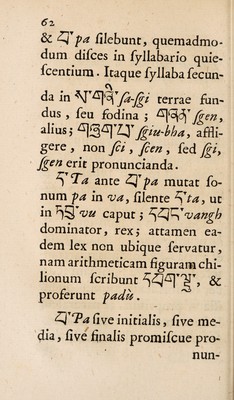 62
& པ་ pa ſilebunt, quemadmo-
dum diſces in ſyllabario quie-
ſcentium. Itaque ſyllaba ſecun-
da in ས་གཞི ſa-ſgi terrae fun-
dus, ſeu fodina; གཞན ſgen,
alius; ſgiu-bha, affli-
gere, non ſci, ſcen, ſed ſgi,
ſgen erit pronuncianda.
ད་ Ta ante པ་ pa mutat ſo-
num pa in va, ſilente ད་ ta, ut
in དབུ་ vu caput; དབང་ vangh
dominator, rex; attamen ea-
dem lex non ubique ſervatur,
nam arithmeticam figuram chi-
lionum ſcribunt &
proferunt padù.
པ་ Pa ſive initialis, ſive me-
dia, ſive finalis promiſcue pro-
nun-